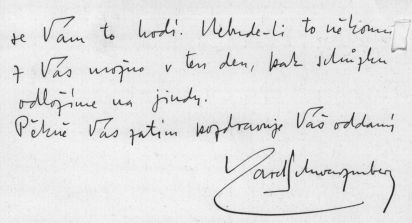 se Vám to hodí. Nebude-li to někomu
z Vás možno v ten den, pak schůzku
odložíme na jindy.
Pěkně Vás zatím pozdravuje Váš oddaný
Karel Schwarzenberg